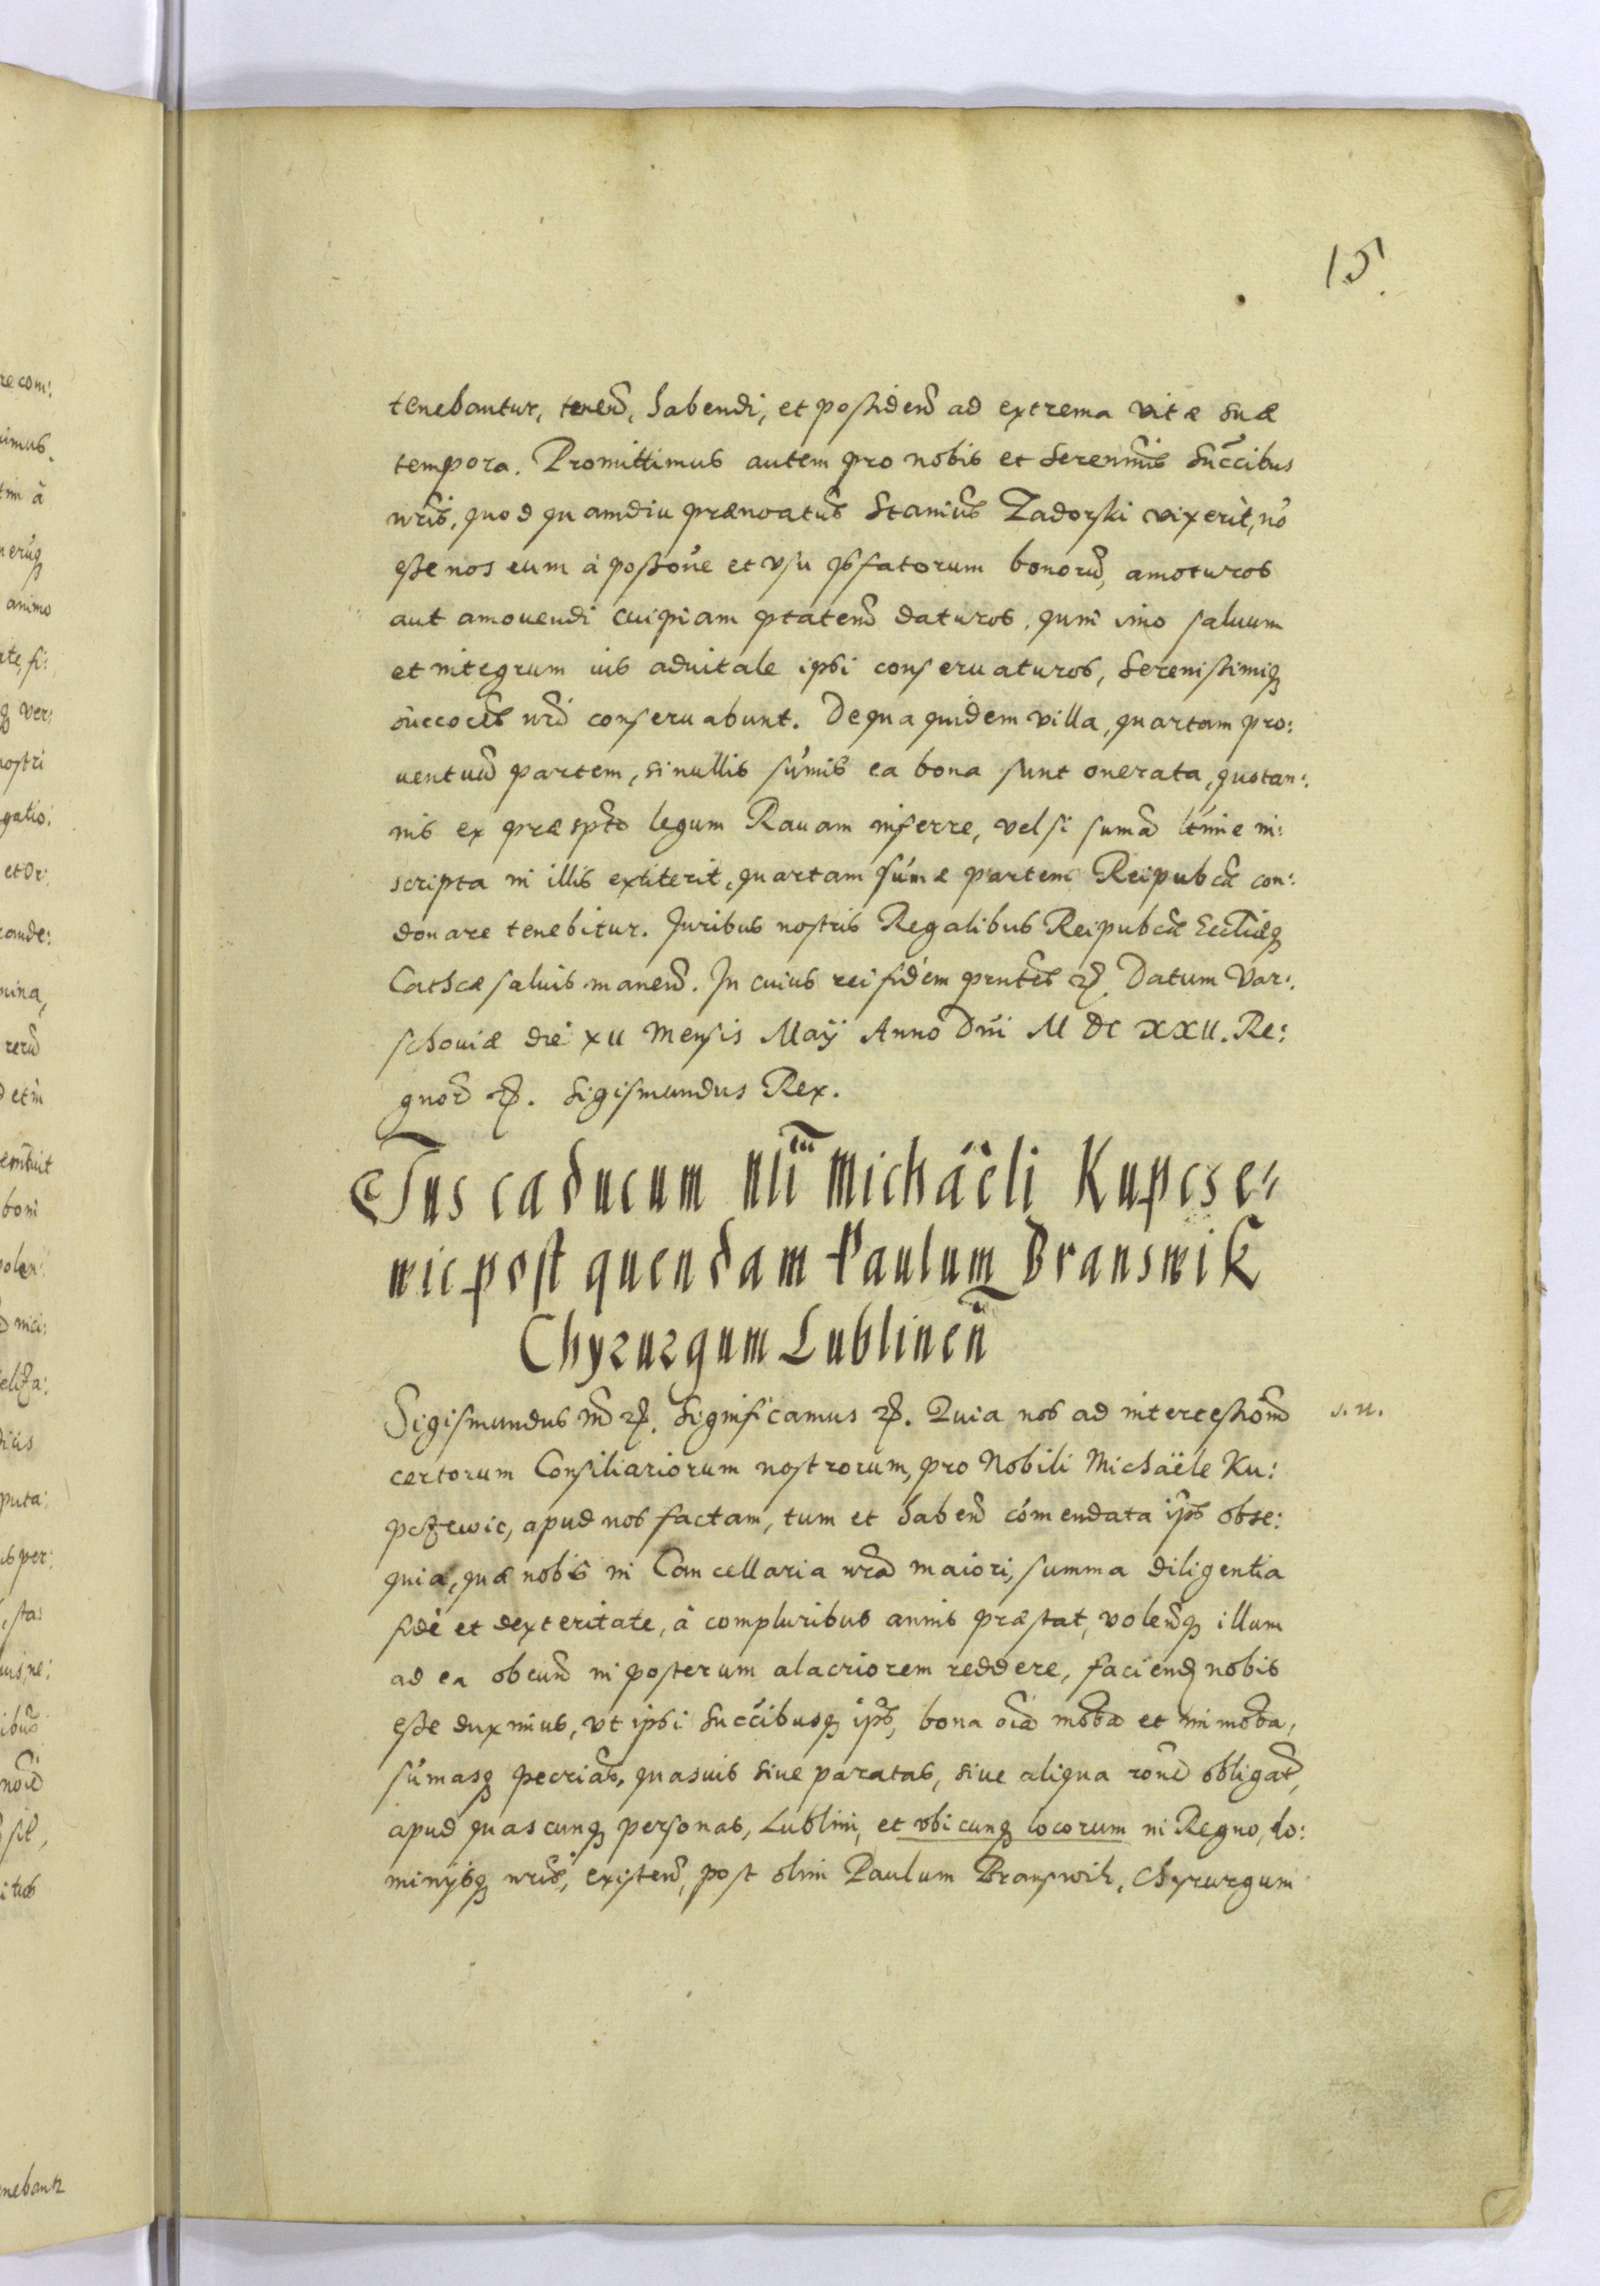 15.
tenebantur, tenend, habendi, et possidend ad extrema vitæ suæ
tempora. Promittimus autem pro nobis et Serenmis Succibus
nris, quod quamdiu prænoatus Stanius Zadorski vixerit, no
esse nos eum à possone et vsu psfatorum bonoru, amoturos
aut amouendi cuipiam ptatem daturos, quin imo saluum
et integrum ius aduitale ipsi conseruaturos, Serenissimiq
succoces nri conseruabunt. De qua quidem villa, quartam pro:
uentuu partem, si nullis sumis ea bona sunt onerata, quotan:
nis ex præspto legum Rauam inferre, vel si suma ltime in:
scripta in illis extiterit, quartam sumæ partem Reipubcæ con:
donare tenebitur. Juribus nostris Regalibus Reipubcæ Eccliæq
Cathcæ saluis manend. In cuius rei fidem prntes etc. Datum Var:
schouiæ die XII Mensis Maij Anno Dni M DC XXII. Re:
gnor etc. Sigismundus Rex.
Jus caducum Nli Michaëli Kupcse
wic post quendam Paulum Branswik
Chyrurgum Lublinen
Sigismundus etc. Significamus etc. Quia nos ad intercessiom
s. n.
certorum Consiliariorum nostrorum, pro Nobili Michaële Ku:
pczewic, apud nos factam, tum et habend comendata ips obse:
quia, quæ nobis in Cancellaria nra maiori, summa diligentia
fide et dexteritate, à compluribus annis præstat, volenq illum
ad ea obeund in posterum alacriorem reddere, faciend nobis
esse duximus, vt ipsi Succibusq ips, bona oia mobta et immobta,
sumasq pecrias, quasuis siue paratas, siue aliqua rone obligat,
apud quascunq personas, Lublini, et vbicunq locorum in Regno, do:
minysq nris, existend, post olim Paulum Branswik, Chyrurgum